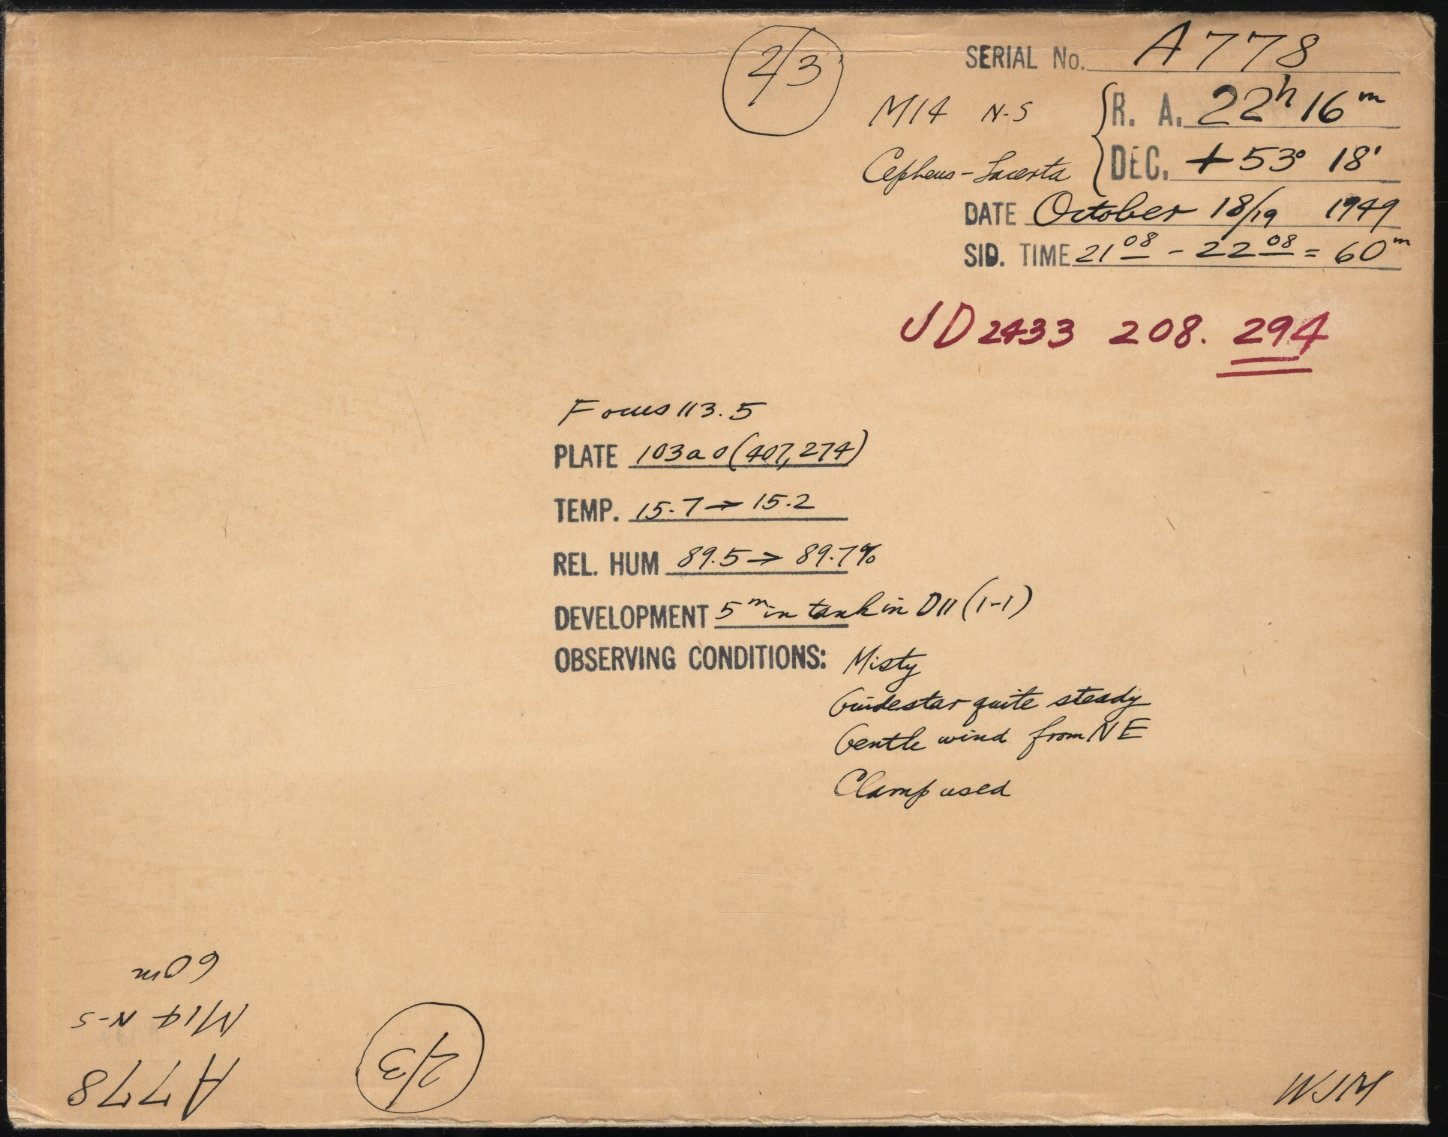 2/3
SERIAL No. A778
M14 N-S R. A. 22h 16m
Cepheus-Lacerta DEC. +53° 18'
DATE October 18/19 1949
SID. TIME 21 08 - 22 08 = 60m
JD 2433 208. 294
Focus 113.5
PLATE 103a O (407,274)
TEMP. 15.7 → 15.2
REL. HUM 89.5 → 89.7%
DEVELOPMENT 5m in tank in D11 (1-1)
OBSERVING CONDITIONS: Misty
Guidestar quite steady
Gentle wind from NE
Clamp used
A778
M14 N-S
60m
2/3
WJM